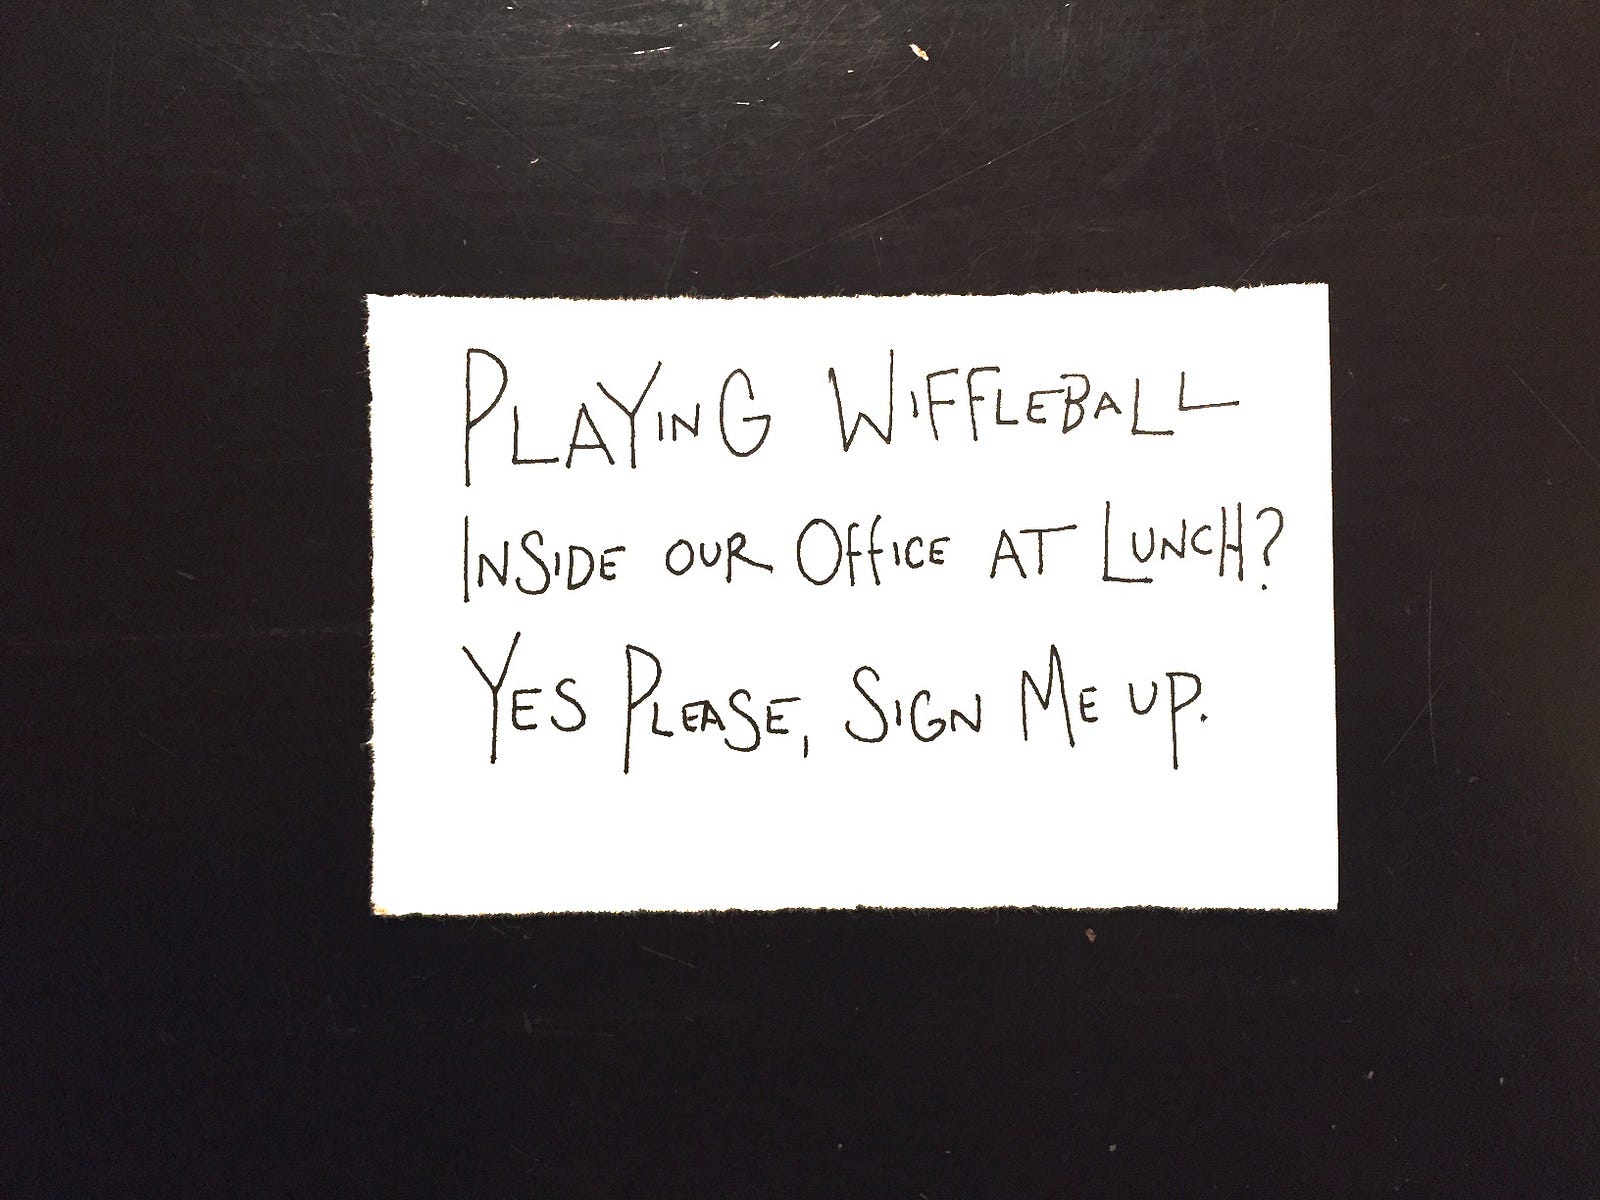 Playing Wiffleball
Inside our Office at Lunch?
Yes Please, Sign Me up.